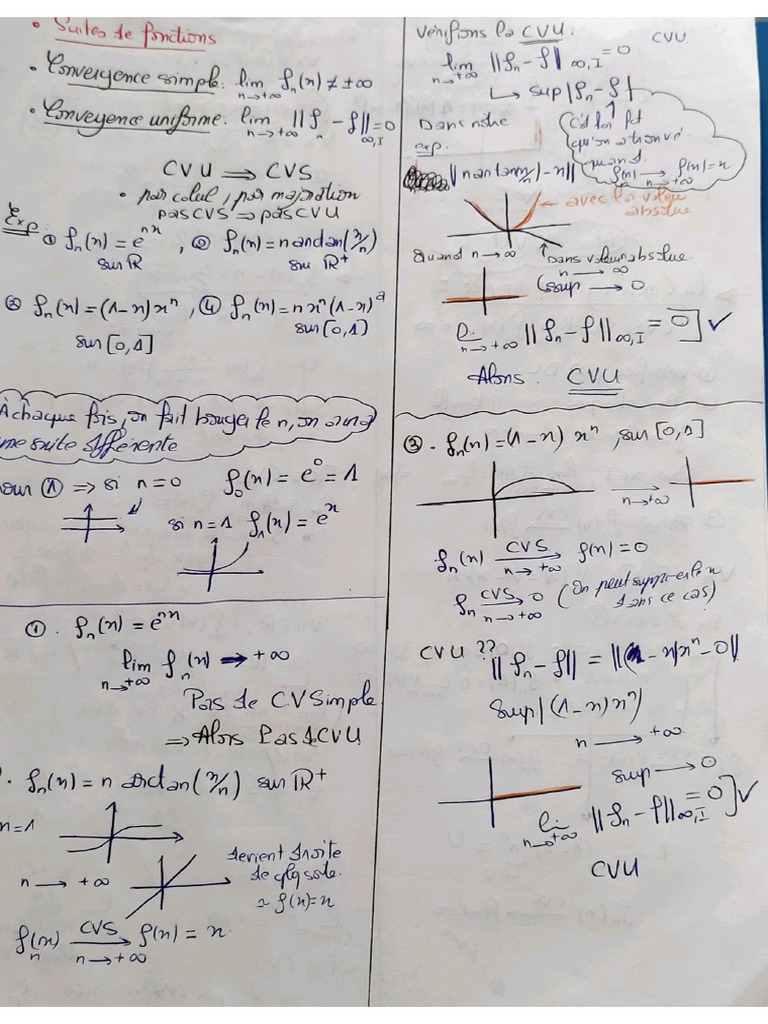 • Suites de fonctions
• Convergence simple: lim fₙ(x) ≠ ±∞
n→+∞
• Convergence uniforme: lim ||fₙ - f||∞,I = 0
n→+∞
CVU ⟹ CVS
• par calcul, par majoration
pas CVS ⇒ pas CVU
Exp
① fₙ(x) = eⁿˣ , ② fₙ(x) = n arctan(x/n)
sur ℝ sur ℝ⁺
③ fₙ(x) = (1-x)xⁿ , ④ fₙ(x) = n xⁿ(1-x)ᵅ
sur [0,1] sur [0,1]
À chaque fois, on fait bouger le n, on aura
une suite différente
Pour ① ⟹ si n=0 f₀(x) = e⁰ = 1
si n=1 f₁(x) = eˣ
①. fₙ(x) = eⁿˣ
lim fₙ(x) → +∞
n→+∞
Pas de CV Simple
⟹ Alors Pas de CVU
. fₙ(x) = n arctan(x/n) sur ℝ⁺
n=1
n → +∞
devient droite
≃ f(x)=x
fₙ(x) CVS→ f(x) = x
n→+∞
Vérifions la CVU. CVU
lim ||fₙ - f||∞,I = 0
n→+∞
↳ sup|fₙ - f|
Dans notre
exp.
C'est la fct
qu'on a trouvé
quand
fₙ(x) → f(x)=x
n→+∞
||n arctan(x/n) - x||
← avec la valeur
absolue
Quand n→∞
Dans valeur absolue
n → ∞
sup → 0
lim ||fₙ - f||∞,I = 0 ✓
n→+∞
Alors. CVU
③. fₙ(x) = (1-x) xⁿ , sur [0,1]
n→+∞
fₙ(x) CVS→ f(x) = 0
n→+∞
fₙ CVS→ 0 (On peut supprimer le x
n→+∞ dans ce cas)
CVU ?? ||fₙ - f|| = ||(1-x)xⁿ - 0||
Sup|(1-x)xⁿ|
n → +∞
sup → 0
lim ||fₙ - f||∞,I = 0 ✓
n→+∞
CVU